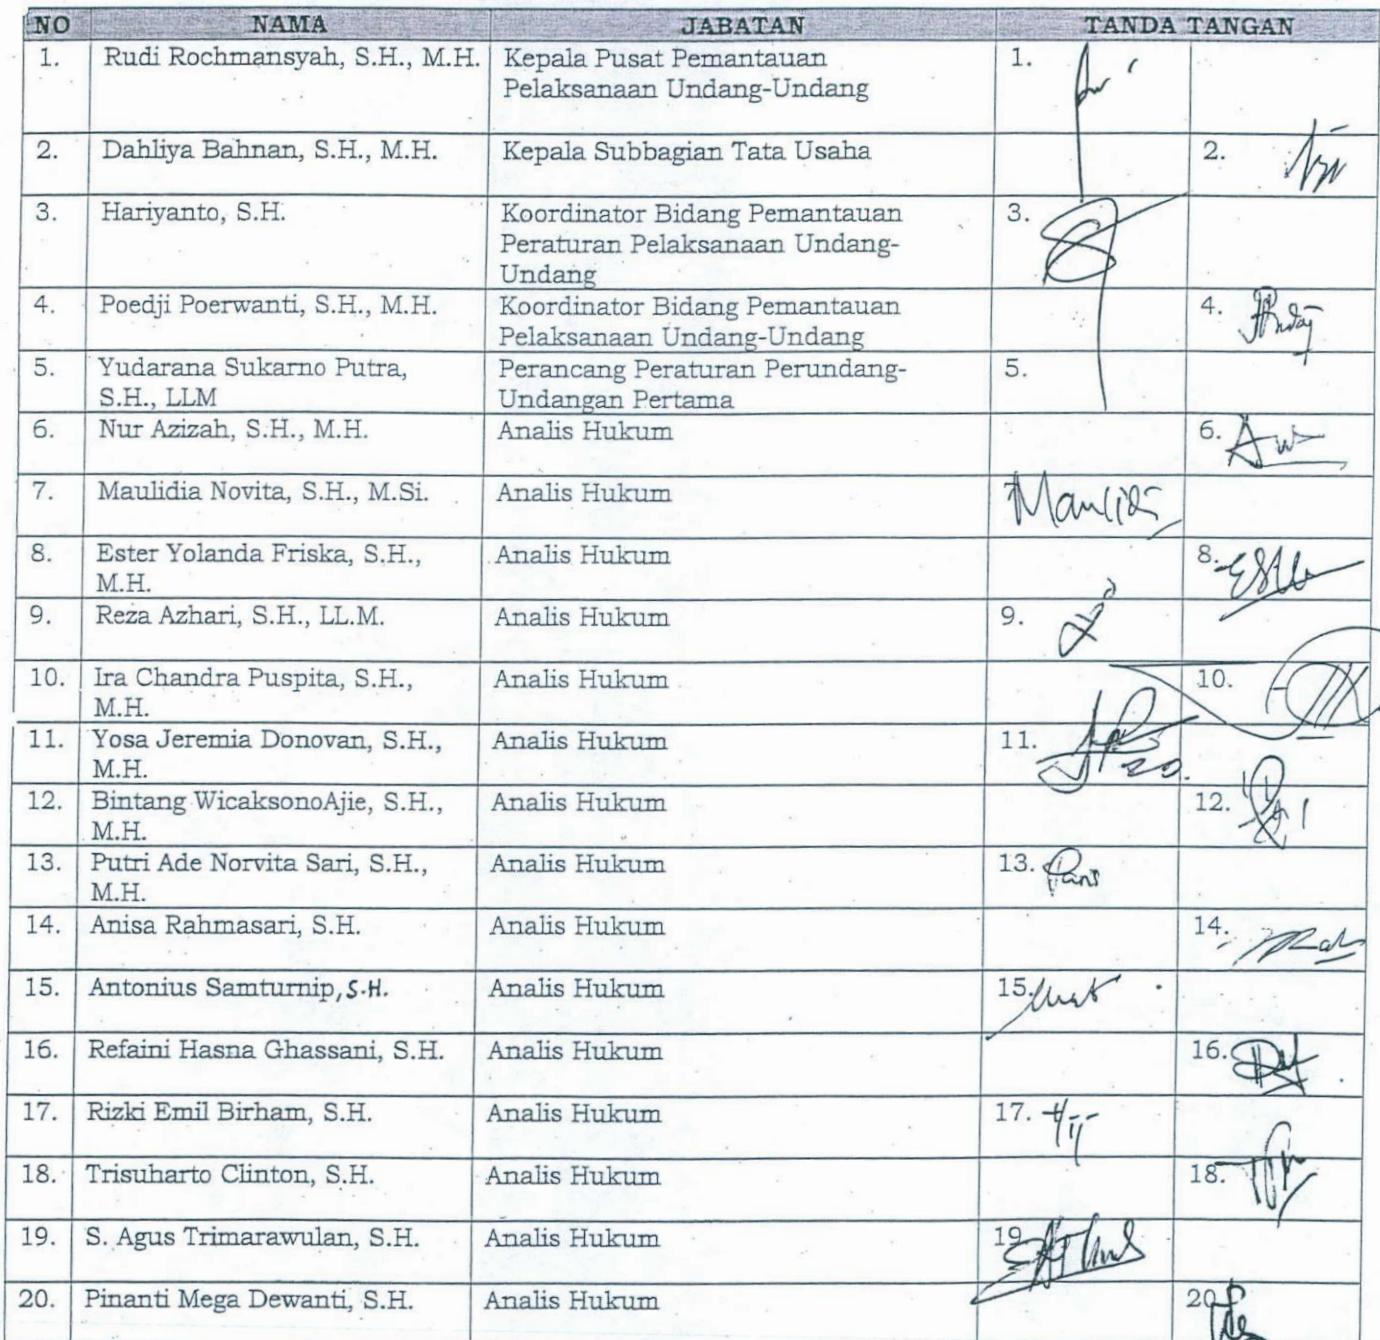 NO NAMA JABATAN TANDA TANGAN
1. Rudi Rochmansyah, S.H., M.H. Kepala Pusat Pemantauan 1.
Pelaksanaan Undang-Undang
2. Dahliya Bahnan, S.H., M.H. Kepala Subbagian Tata Usaha 2.
3. Hariyanto, S.H. Koordinator Bidang Pemantauan 3.
Peraturan Pelaksanaan Undang-
Undang
4. Poedji Poerwanti, S.H., M.H. Koordinator Bidang Pemantauan 4.
Pelaksanaan Undang-Undang
5. Yudarana Sukarno Putra, Perancang Peraturan Perundang- 5.
S.H., LLM Undangan Pertama
6. Nur Azizah, S.H., M.H. Analis Hukum 6.
7. Maulidia Novita, S.H., M.Si. Analis Hukum
8. Ester Yolanda Friska, S.H., Analis Hukum 8.
M.H.
9. Reza Azhari, S.H., LL.M. Analis Hukum 9.
10. Ira Chandra Puspita, S.H., Analis Hukum 10.
M.H.
11. Yosa Jeremia Donovan, S.H., Analis Hukum 11.
M.H.
12. Bintang WicaksonoAjie, S.H., Analis Hukum 12.
M.H.
13. Putri Ade Norvita Sari, S.H., Analis Hukum 13.
M.H.
14. Anisa Rahmasari, S.H. Analis Hukum 14.
15. Antonius Samturnip, S.H. Analis Hukum 15.
16. Refaini Hasna Ghassani, S.H. Analis Hukum 16.
17. Rizki Emil Birham, S.H. Analis Hukum 17.
18. Trisuharto Clinton, S.H. Analis Hukum 18.
19. S. Agus Trimarawulan, S.H. Analis Hukum 19
20. Pinanti Mega Dewanti, S.H. Analis Hukum 20